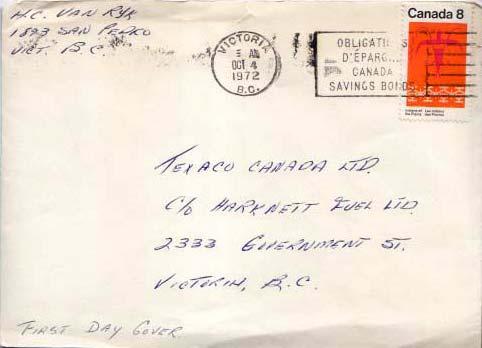 H.C. VAN RYK
1893 SAN PEDRO
VICT. B.C.
VICTORIA
AM
OCT 4
1972
B.C.
OBLIGATI S
D'ÉPARG...
CANADA
SAVINGS BONDS
Canada 8
Indians of the Plains
Les Indiens des Plaines
TEXACO CANADA LTD.
C/O HARKNETT FUEL LTD.
2333 GOVERNMENT ST.
VICTORIA, B.C.
FIRST DAY COVER